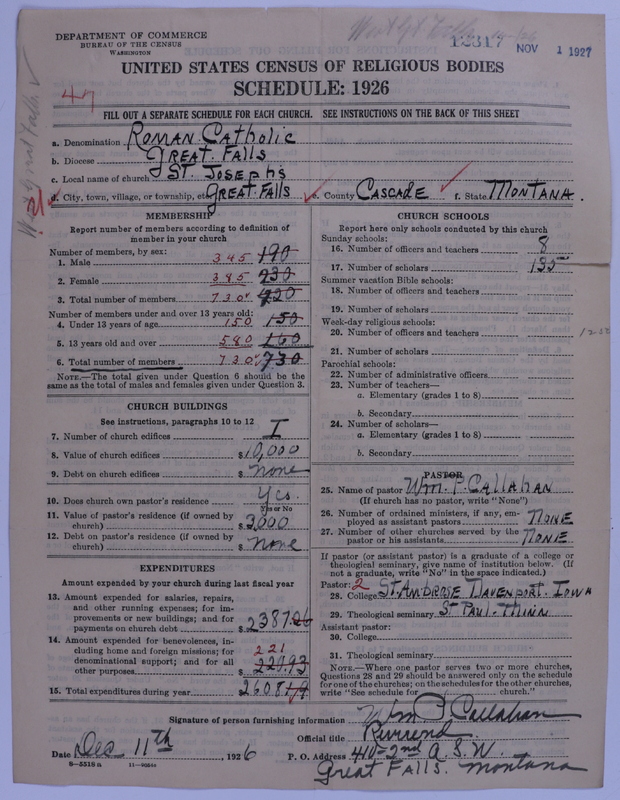 DEPARTMENT OF COMMERCE
BUREAU OF THE CENSUS
WASHINGTON
12317 NOV 1 1927
UNITED STATES CENSUS OF RELIGIOUS BODIES
SCHEDULE: 1926
47
FILL OUT A SEPARATE SCHEDULE FOR EACH CHURCH. SEE INSTRUCTIONS ON THE BACK OF THIS SHEET
a. Denomination ROMAN CATHOLIC
b. Diocese GREAT FALLS
c. Local name of church ST. JOSEPH'S
d. City, town, village, or township, etc. GREAT FALLS e. County CASCADE f. State MONTANA.
MEMBERSHIP
Report number of members according to definition of member in your church
Number of members, by sex:
1. Male 345 190
2. Female 385 230
3. Total number of members 730 420
Number of members under and over 13 years old:
4. Under 13 years of age 150 150
5. 13 years old and over 580 160
6. Total number of members 730 730
NOTE.—The total given under Question 6 should be the same as the total of males and females given under Question 3.
CHURCH BUILDINGS
See instructions, paragraphs 10 to 12
7. Number of church edifices I
8. Value of church edifices $10,000
9. Debt on church edifices $ None
10. Does church own pastor's residence Yes.
Yes or No
11. Value of pastor's residence (if owned by church) $3,000
12. Debt on pastor's residence (if owned by church) $ None
EXPENDITURES
Amount expended by your church during last fiscal year
13. Amount expended for salaries, repairs, and other running expenses; for improvements or new buildings; and for payments on church debt $2387.26
14. Amount expended for benevolences, including home and foreign missions; for denominational support; and for all other purposes 221 $ 220.93
15. Total expenditures during year $2608.19
CHURCH SCHOOLS
Report here only schools conducted by this church
Sunday schools:
16. Number of officers and teachers 8
17. Number of scholars 135
Summer vacation Bible schools:
18. Number of officers and teachers
19. Number of scholars
Week-day religious schools:
20. Number of officers and teachers
21. Number of scholars
Parochial schools:
22. Number of administrative officers
23. Number of teachers—
a. Elementary (grades 1 to 8)
b. Secondary
24. Number of scholars—
a. Elementary (grades 1 to 8)
b. Secondary
PASTOR
25. Name of pastor WM. P. CALLAHAN
(If church has no pastor, write "None")
26. Number of ordained ministers, if any, employed as assistant pastors NONE
27. Number of other churches served by the pastor or his assistants NONE
If pastor (or assistant pastor) is a graduate of a college or theological seminary, give name of institution below. (If not a graduate, write "No" in the space indicated.)
Pastor: 2
28. College ST. AMBROSE DAVENPORT. IOWA
29. Theological seminary ST PAUL. MINN
Assistant pastor:
30. College
31. Theological seminary
NOTE.—Where one pastor serves two or more churches, Questions 28 and 29 should be answered only on the schedule for one of the churches; on the schedules for the other churches, write "See schedule for church."
Signature of person furnishing information Wm P Callahan
Official title Reverend
Date Dec 11th, 1926 P. O. Address 410-2nd A. S. W.
Great Falls. Montana
8—5518 a